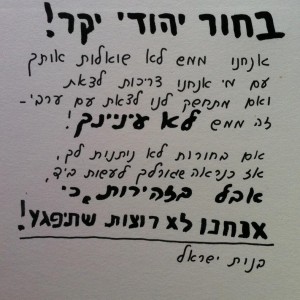 בחור יהודי יקר!
אנחנו ממש לא שואלות אותך
עם מי אנחנו צריכות לצאת
ואם מתחשק לנו לצאת עם ערבי-
זה ממש לא עיניינך!
אם בחורות לא ניתנית לך,
אז כנראה שגורלך לעשות ביד,
אבל בזהירות, כי
אנחנו לא רוצות שתיפגע!
בנות ישראל